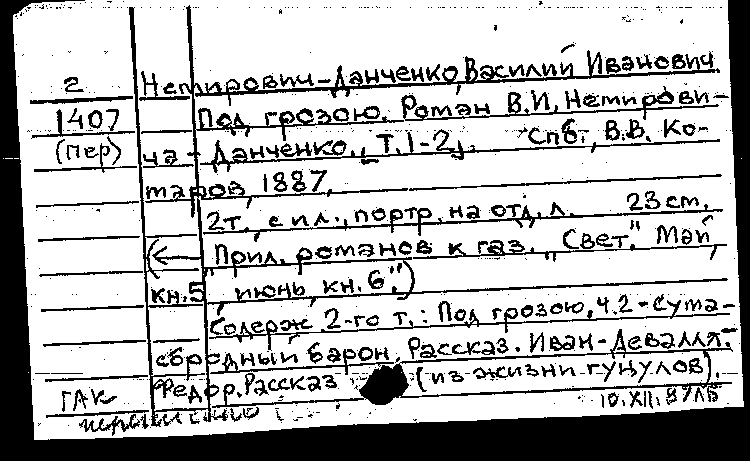 2 Немирович-Данченко, Василий Иванович
1407 Под грозою. Роман В.И. Немирови-
(пер) ча-Данченко. [Т. 1-2]. Спб., В.В. Ко-
маров, 1887.
2т., с ил., портр. на отд. л. 23 см.
(← "Прил. романов к газ. "Свет". Май,
кн. 5, июнь, кн. 6".)
Содерж 2-го т.: Под грозою, ч. 2 - Сума-
сбродный барон. Рассказ. Иван-Деваля.
Федор. Рассказ (из жизни гуцулов).
ГАК 10.XII.87